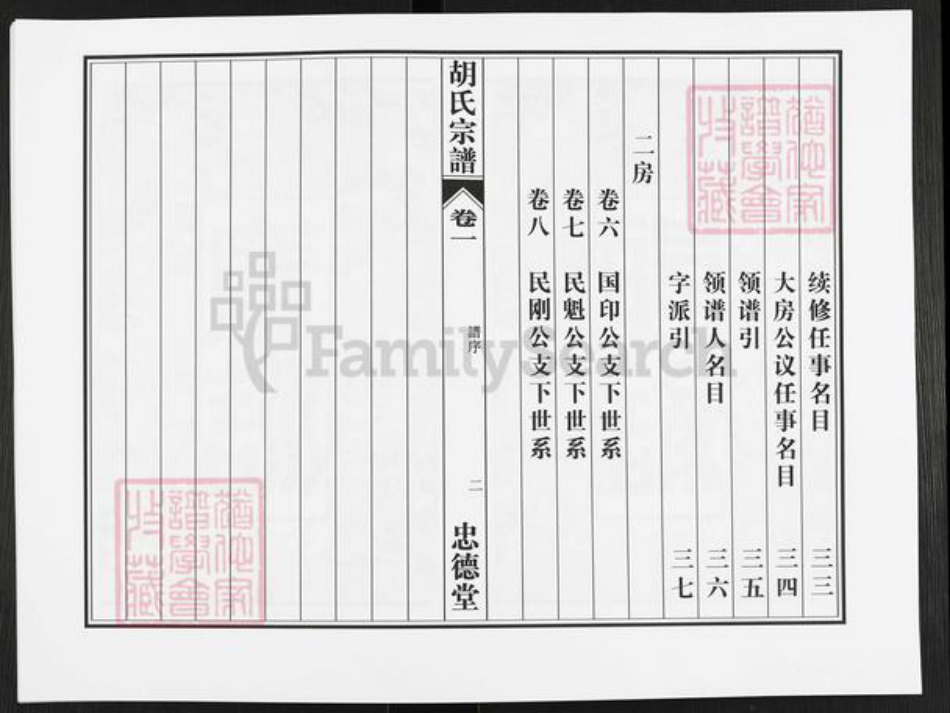 续修任事名目 三三
大房公议任事名目 三四
领谱引 三五
领谱人名目 三六
字派引 三七
二房
卷六 国印公支下世系
卷七 民魁公支下世系
卷八 民刚公支下世系
胡氏宗譜 卷一 譜序 二 忠德堂
FamilySearch